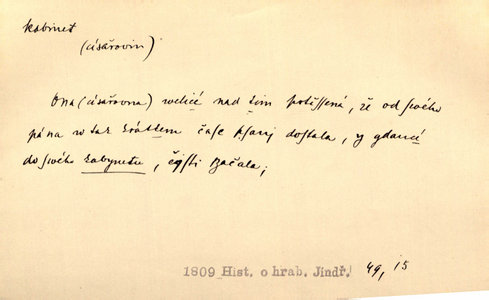 kabinet
(císařovin)
Ona (císařovna) welice nad tím potěssená, že od swého
pána w tak krátkém čase psanj dostala, y gdaucí
do swého kabynetu, čjsti začala;
1809 Hist. o hrab. Jindř. 49, 15